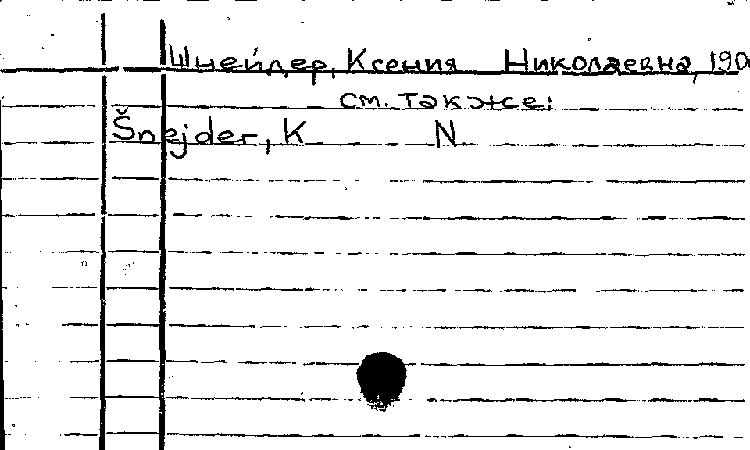 Шнейдер, Ксения Николаевна, 190
см. также:
Šnejder, K N